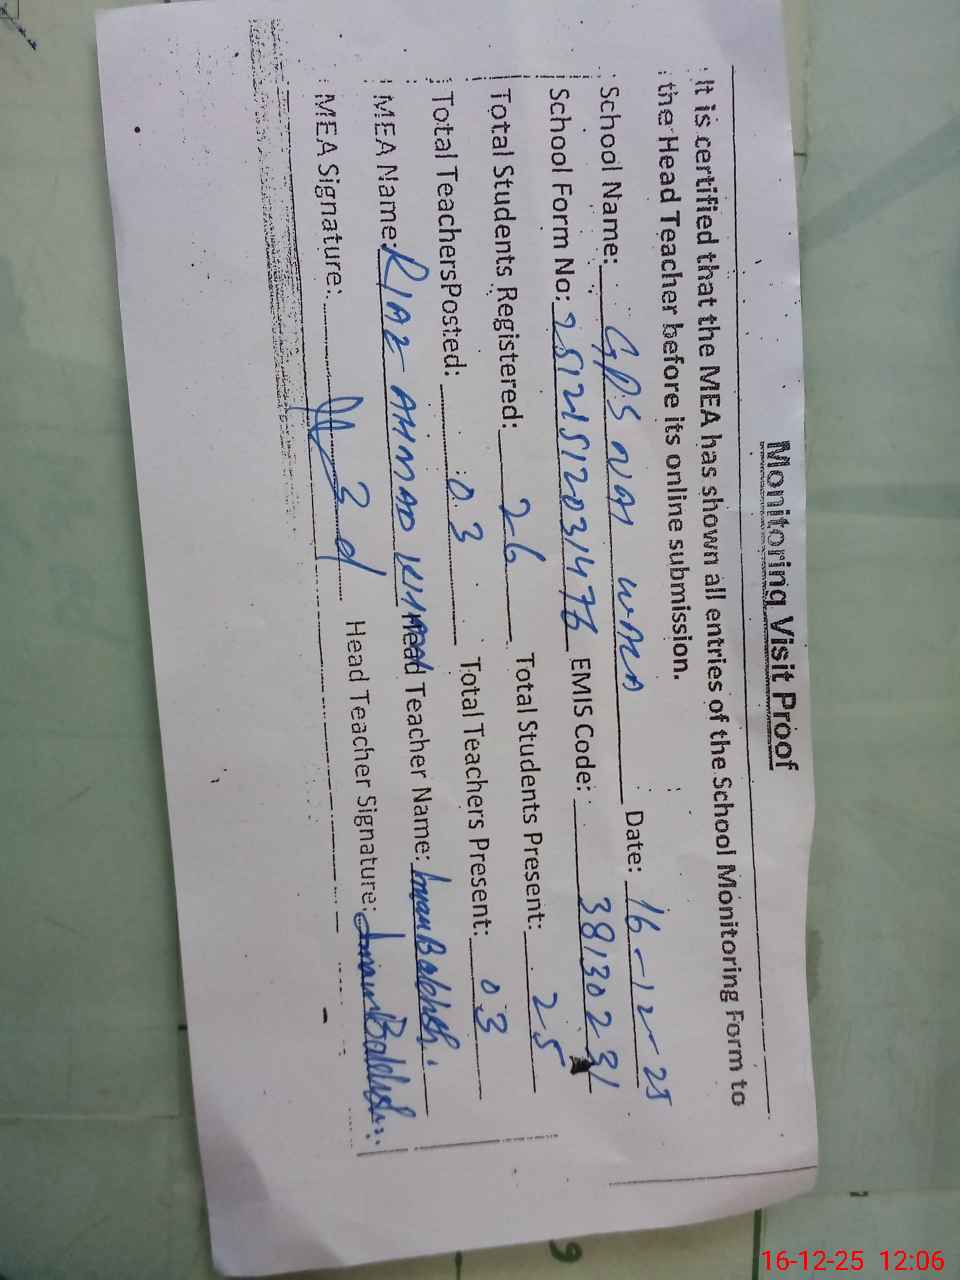 Monitoring Visit Proof
It is certified that the MEA has shown all entries of the School Monitoring Form to
the Head Teacher before its online submission.
School Name: GPS NAI WALA Date: 16-12-25
School Form No: 25121512031476 EMIS Code: 38130231
Total Students Registered: 26 Total Students Present: 25
Total TeachersPosted: 03 Total Teachers Present: 03
MEA Name: RIAZ AHMAD Head Teacher Name: Imam Bakhsh
MEA Signature: Head Teacher Signature: Imam Bakhsh
16-12-25 12:06